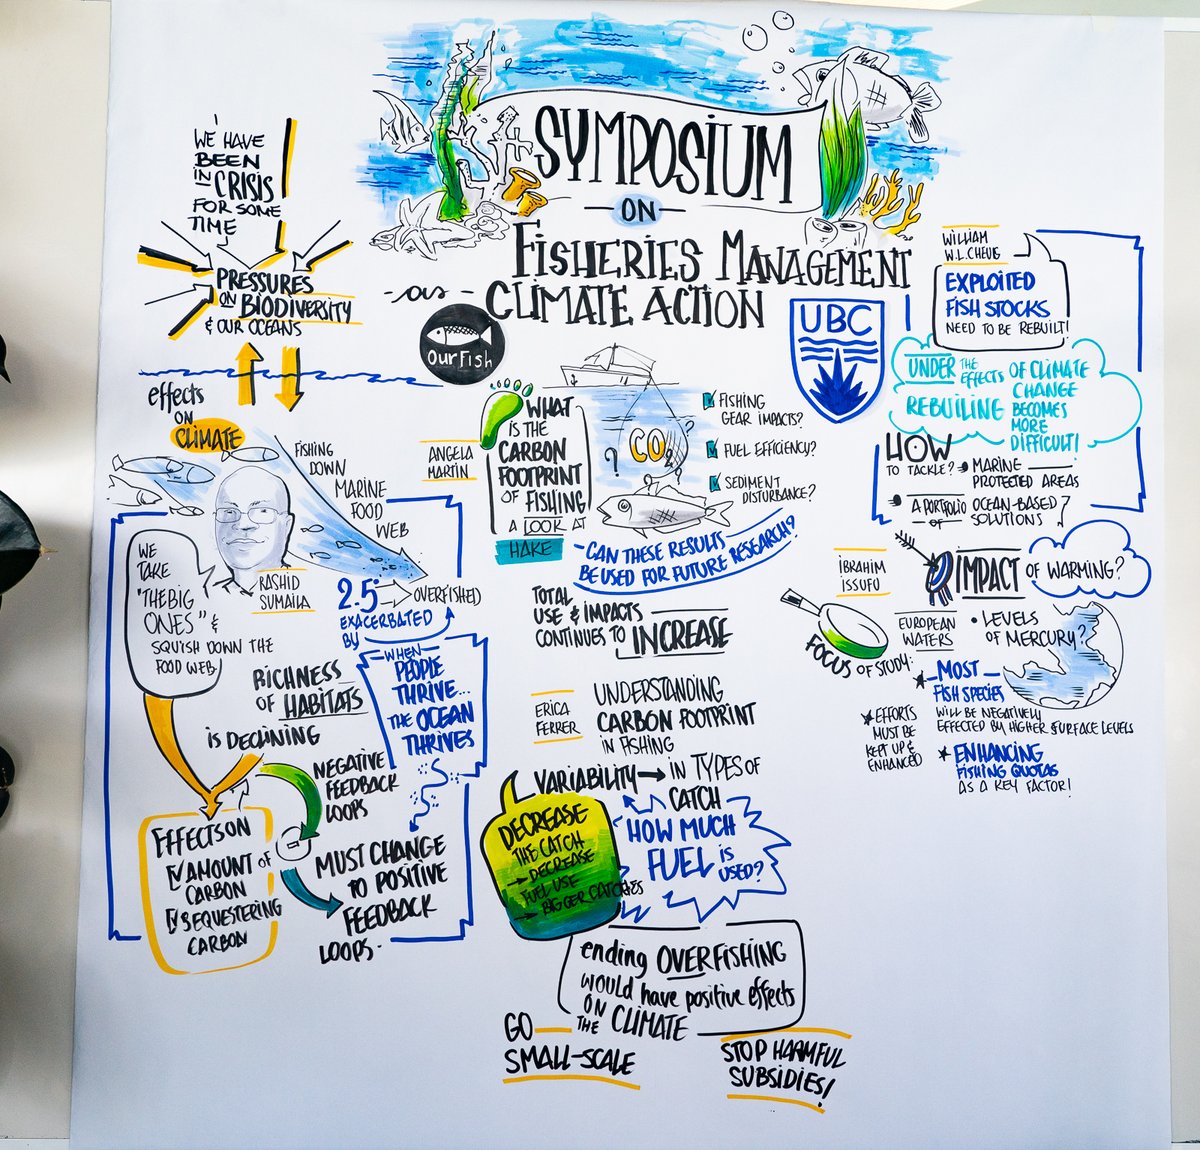 SYMPOSIUM
ON
FISHERIES MANAGEMENT
- as - CLIMATE ACTION
OUR FISH
UBC
WE HAVE
BEEN
IN CRISIS
FOR SOME
TIME
PRESSURES
ON BIODIVERSITY
& OUR OCEANS
effects
ON
CLIMATE
FISHING
DOWN
MARINE
FOOD
WEB
WE
TAKE
"THE BIG
ONES" &
SQUISH DOWN THE
FOOD WEB!
RASHID
SUMAILA
2.5° → OVERFISHED
EXACERBATED
BY
WHEN
PEOPLE
THRIVE...
THE OCEAN
THRIVES
RICHNESS
OF HABITATS
IS DECLINING
NEGATIVE
FEEDBACK
LOOPS
EFFECTS ON
AMOUNT OF
CARBON
SEQUESTERING
CARBON
MUST CHANGE
TO POSITIVE
FEEDBACK
LOOPS-
ANGELA
MARTIN
WHAT
IS THE
CARBON
FOOTPRINT
OF FISHING
A LOOK AT
HAKE
CO2
?
?
FISHING
GEAR IMPACTS?
FUEL EFFICIENCY?
SEDIMENT
DISTURBANCE?
- CAN THESE RESULTS
BE USED FOR FUTURE RESEARCH?
TOTAL
USE & IMPACTS
CONTINUES TO INCREASE
ERICA
FERRER
UNDERSTANDING
CARBON FOOTPRINT
IN FISHING
VARIABILITY → IN TYPES OF
CATCH
DECREASE
THE CATCH
→ DECREASE
FUEL USE
→ BIGGER CATCHES
HOW MUCH
FUEL IS
USED?
ending OVERFISHING
WOULD have positive effects
ON
THE CLIMATE
GO
SMALL-SCALE
STOP HARMFUL
SUBSIDIES!
WILLIAM
W.L. CHEUG
EXPLOITED
FISH STOCKS
NEED TO BE REBUILT!
UNDER THE EFFECTS OF CLIMATE
CHANGE
REBUILING BECOMES
MORE
DIFFICULT!
HOW
TO TACKLE? → MARINE
PROTECTED AREAS
→ A PORTFOLIO OF OCEAN-BASED
SOLUTIONS
IBRAHIM
ISSUFU
IMPACT OF WARMING?
FOCUS OF STUDY:
EUROPEAN
WATERS
• LEVELS
OF MERCURY?
MOST
FISH SPECIES
WILL BE NEGATIVELY
EFFECTED BY HIGHER SURFACE LEVELS
EFFORTS
MUST BE
KEPT UP &
ENHANCED
ENHANCING
FISHING QUOTAS
AS A KEY FACTOR!